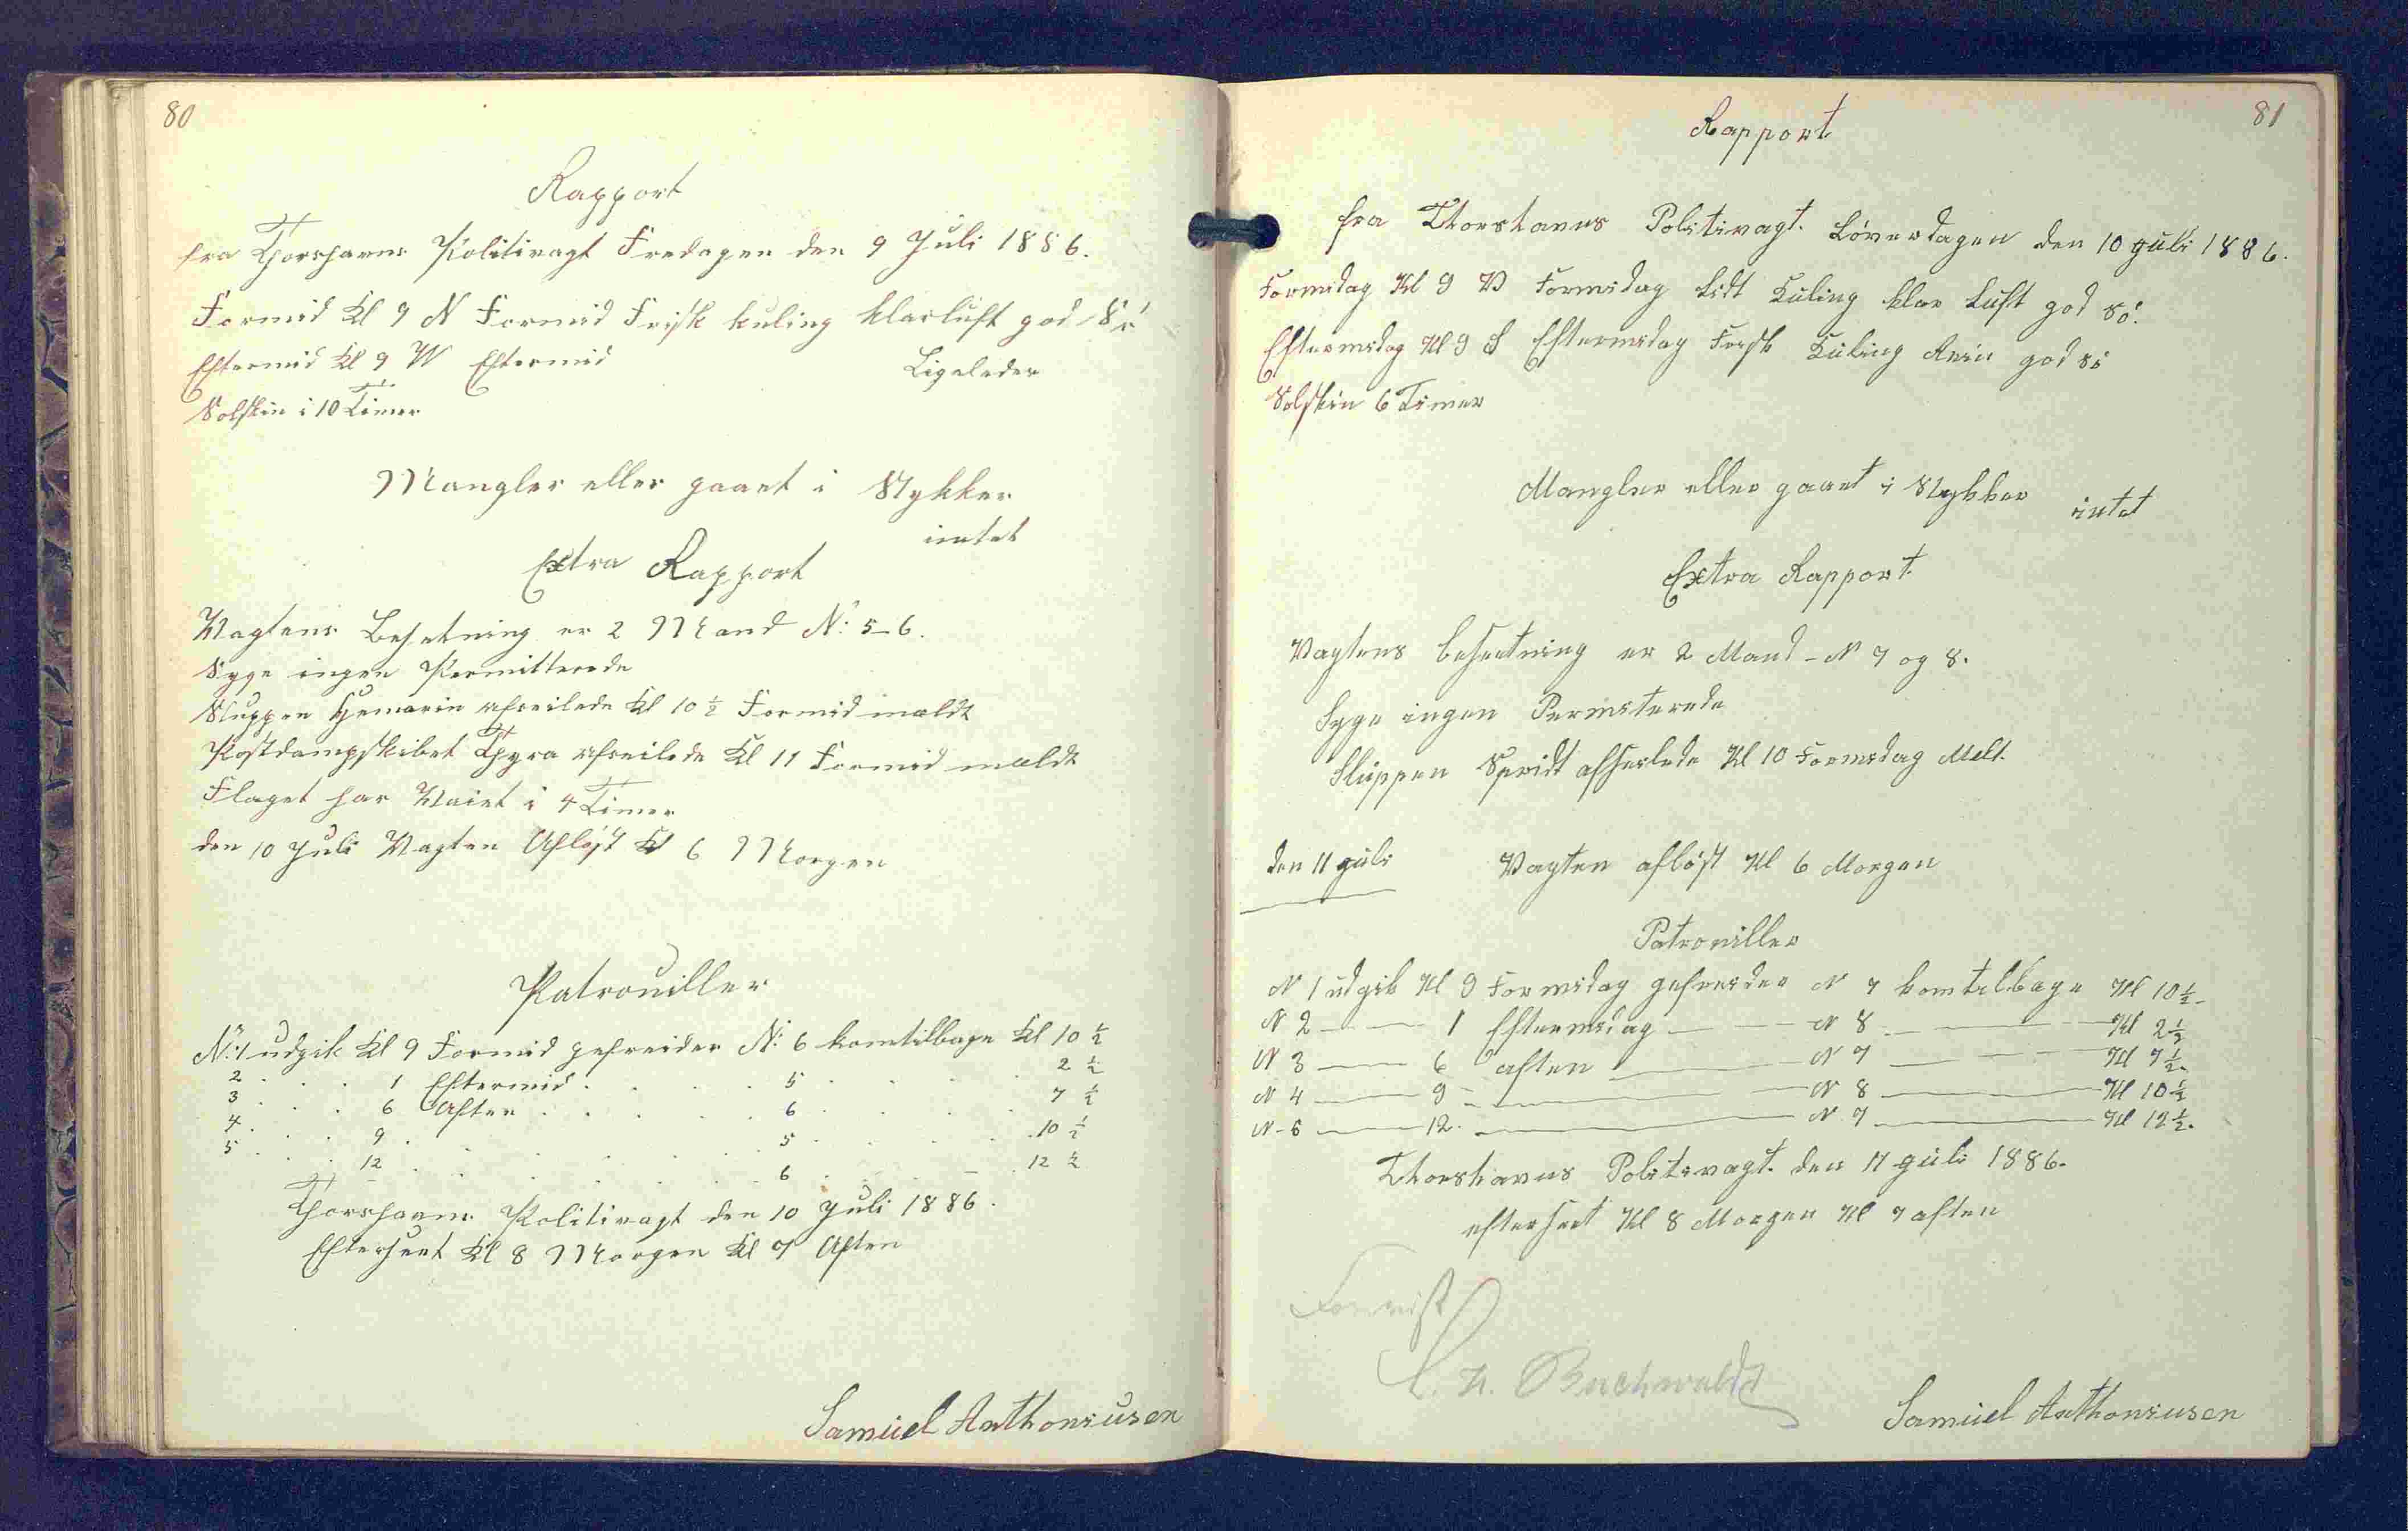 80
Rapport
fra Thorshavns Politivagt Fredagen den 9 Juli 1886.
Formid Kl 9 N Formid Frisk kuling klarluft god Sö
Eftermid Kl 9 W Eftermid Ligeledes
Solskin i 10 Timer
Mangler eller gaaet i Stykker
intet
Extra Rapport
Vagtens Besetning er 2 Mand No 5-6.
Syge ingen Permitterede
Sluppen afseilede Kl 10 ½ Formid mældt
Postdampskibet Thyra afseilede Kl 11 Formid mældt
Flaget har Vaiet i 4 Timer
den 10 Juli Vagten Afløst Kl 6 Morgen
Patrouiller
No 1 udgik Kl 9 Formid gefreider No 6 komtilbage Kl 10 ½
2 . . . 1 Eftermid . . . . 5 . . . . 2 ½
3 . . . 6 Aften . . . . 6 . . . . 7 ½
4 . . . 9 . . . . . 5 . . . . 10 ½
5 . . . 12 . . . . . 6 . . . . 12 ½
Thorshavns Politivagt den 10 Juli 1886.
Efterseet Kl 8 Morgen Kl 7 Aften
Samuel Anthoniusen
81
Rapport
fra Thorshavns Politivagt. Löverdagen den 10 Juli 1886.
Formidag Kl 9 V Formidag Lidt Kuling klar Luft god Sö.
Eftermidag Kl 9 S Eftermidag Frisk Kuling Rein god Sö
Solskin 6 Timer
Mangler eller gaaet i Stykker intet
Extra Rapport
Vagtens besætning er 2 Mand - N 7 og 8.
Syge ingen Permiterede
Sluppen Spridt afseilede Kl 10 Formidag Melt.
den 11 Juli Vagten afløst Kl 6 Morgen
Patrouiller
N 1 udgik Kl 9 Formidag gefreider N 7 komtilbage Kl 10 ½
N 2 — 1 Eftermidag — N 8 — Kl 2 ½
N 3 — 6 aften — N 7 — Kl 7 ½
N 4 — 9 — N 8 — Kl 10 ½
N - 5 — 12. — N 7 — Kl 12 ½.
Thorshavns Politivagt. den 11 Juli 1886.
efterseet Kl 8 Morgen Kl 7 aften
Forevist
Buchwaldt
Samuel Anthoniusen